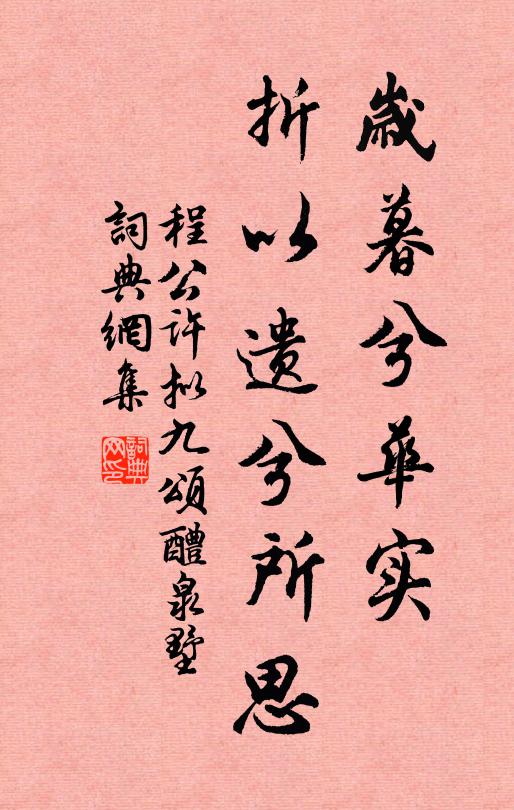 歲暮兮華实
折以遗兮所思
程公许拟九頌醴泉墅
詞典網集
詞典网印